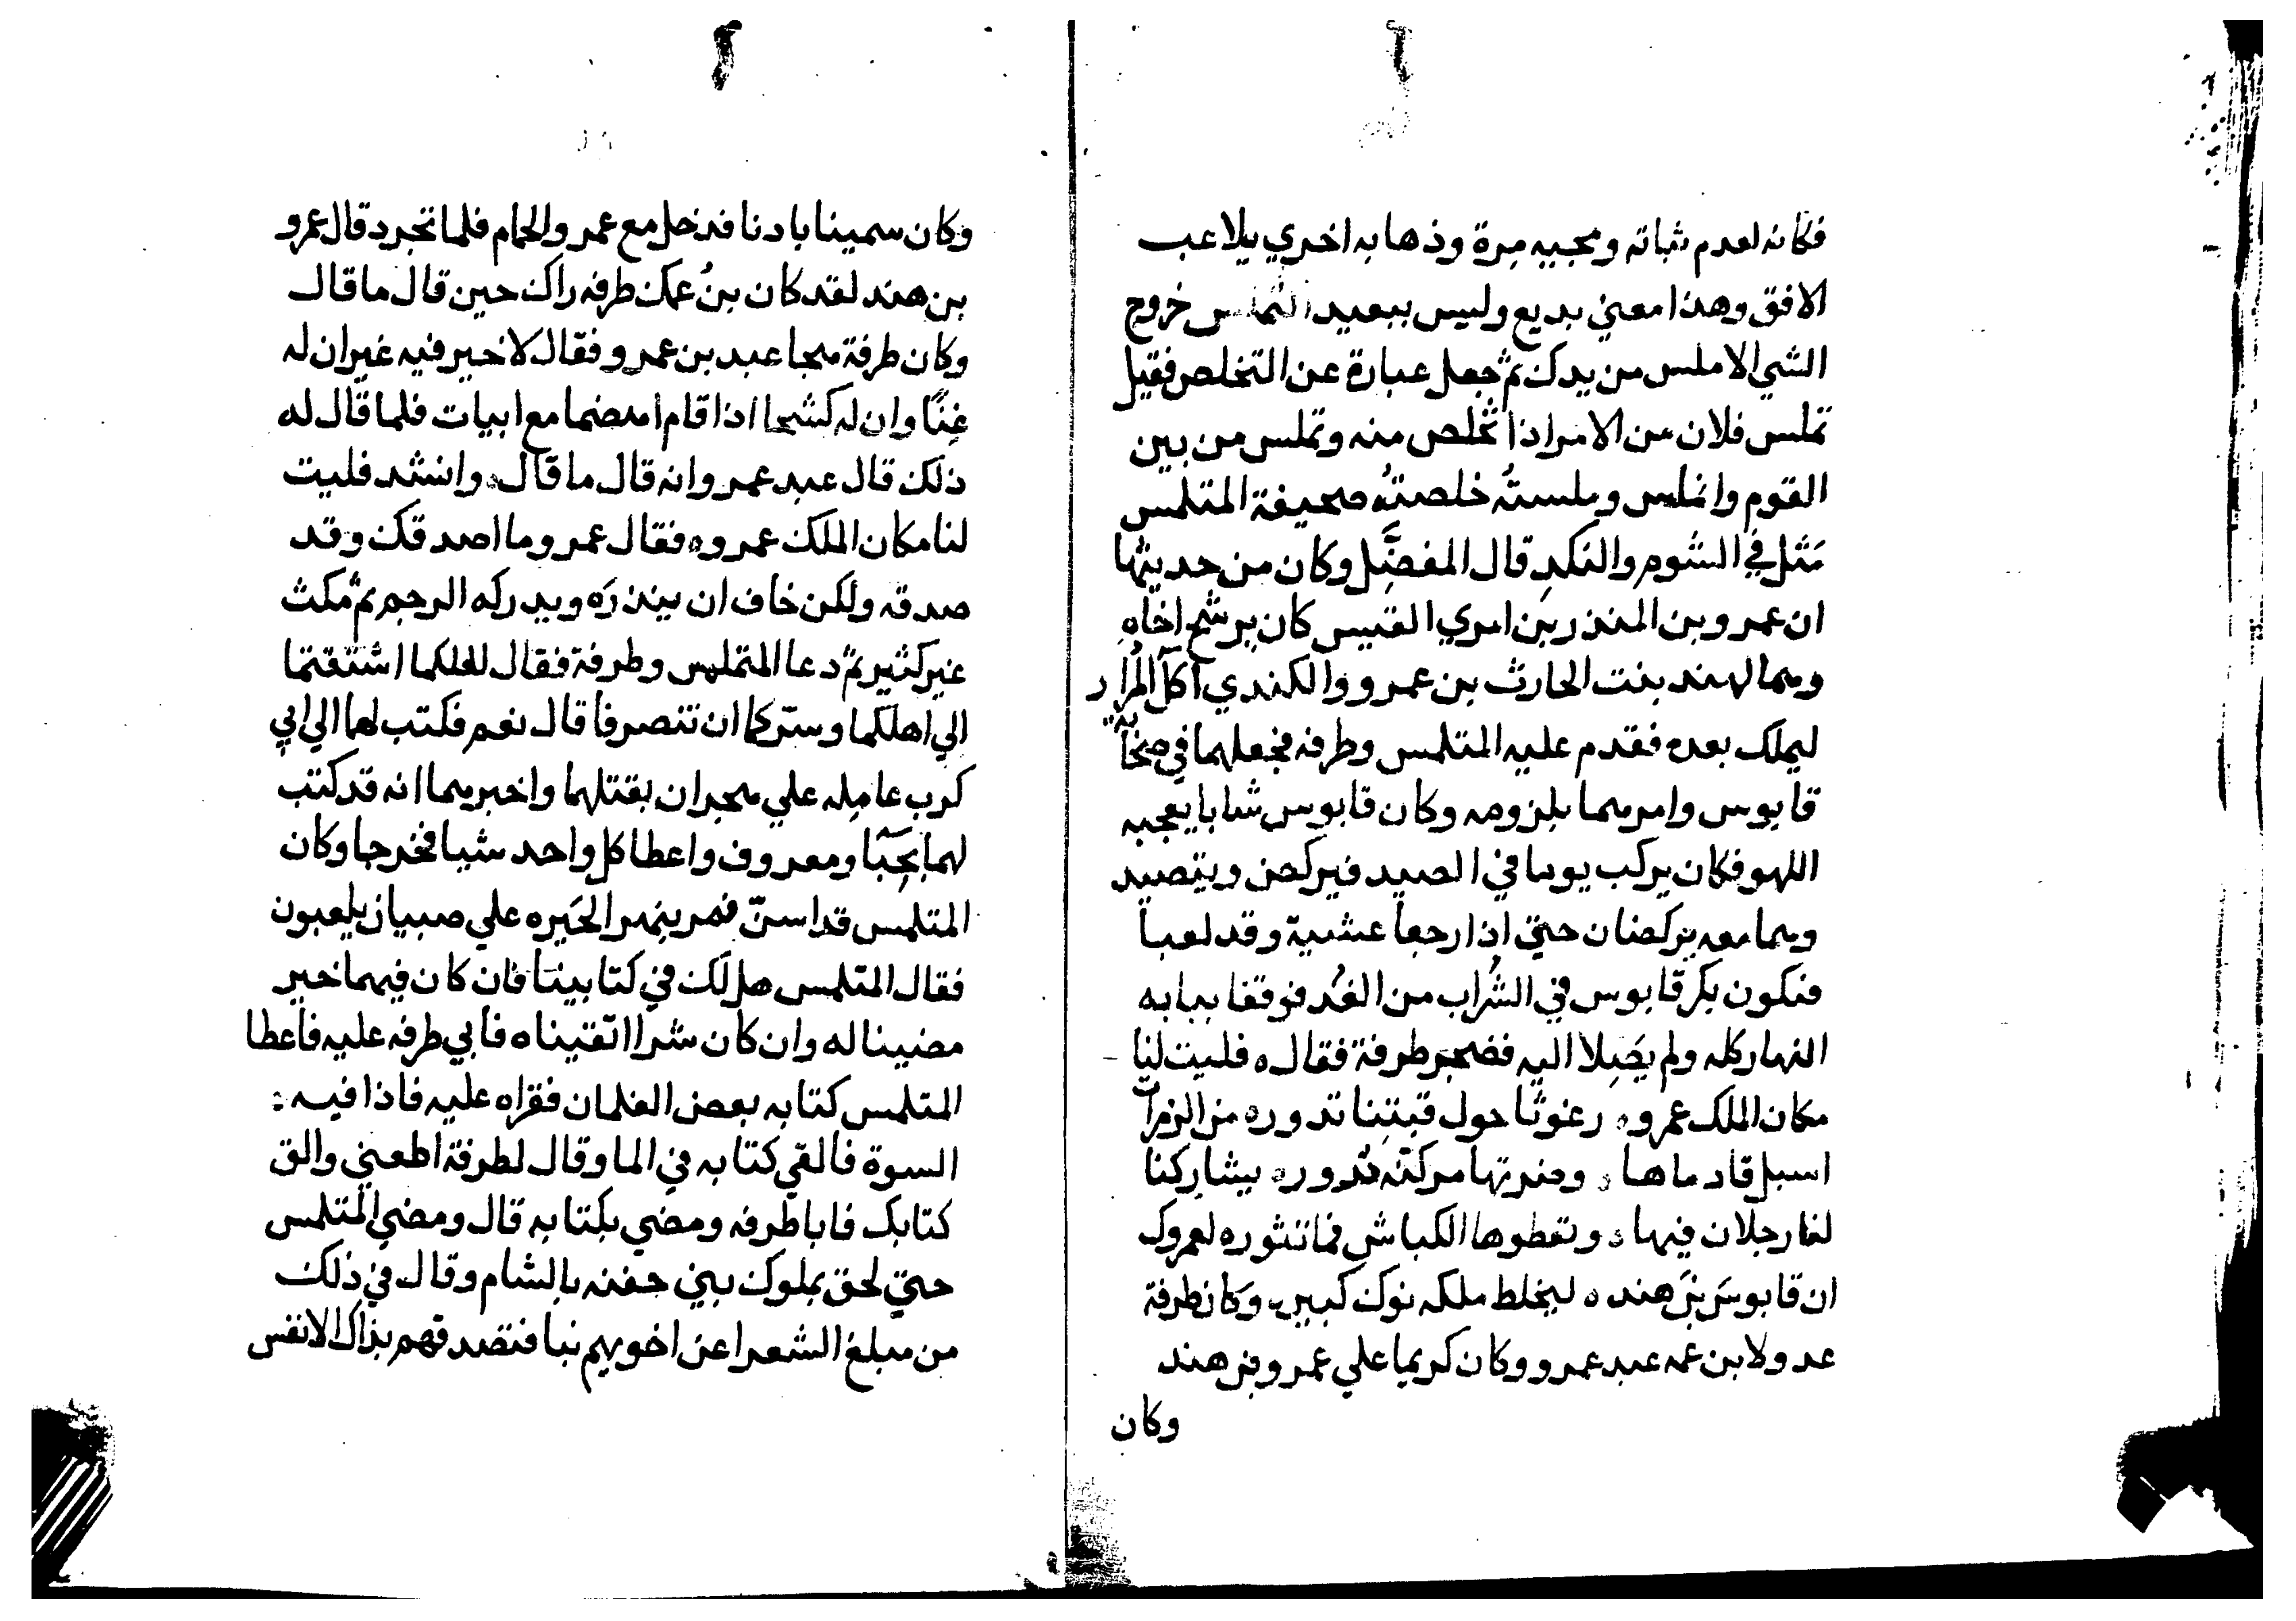 فكانه لعدم ثباته ومجيبه مرة وذهابه اخري يلاعب
الافق وهذا معني بديع وليس ببعيد التملس خروج
الشي الاملس من يدك ثم جعل عبارة عن التخلص فقيل
تملس فلان من الامر اذا تخلص منه وتملس من بين
القوم وانملس وملسته خلصته صحيفة المتلمس
مثل في الشوم والنكد قال المفضل وكان من حديثها
ان عمرو بن المنذر بن امري القيس كان يرشح اخاه
وهما لهند بنت الحارث بن عمرو والكندي آكل المرار
ليملك بعده فقدم عليه المتلمس وطرفه فجعلهما في صحابه
قابوس وامرهما بلزومه وكان قابوس شابا يعجبه
اللهو فكان يركب يوما في الصيد فيركض ويتصيد
وهما معه يركضان حتي اذا رجعا عشية وقد لعبا
فنكون بكر قابوس في الشراب من الغد فوقفا ببابه
النهار كله ولم يصلا اليه فضجر طرفة فقال ه فليت لنا
مكان الملك عمرو ه رغوثا حول قبتنا تدور ه من الزمرات
اسبل قادماها ه وضرتها مركنه تدور ه يشاركنا
لنا رجلان فيها ه وتعطوها الكباش فما تثور ه لعمرك
ان قابوس بن هند ه ليخلط ملكه نوك كبير وكان طرفة
عدولا بن عمه عبد عمرو وكان كريما علي عمرو بن هند
وكان
وكان سمينا بادنا فدخل مع عمرو الحمام فلما تجرد قال عمرو
بن هند لقد كان بن عمك طرفه راك حين قال ما قال
وكان طرفة هجا عبد بن عمرو فقال لا خير فيه غير ان له
غنًا وان له كشحا اذا قام اهضما مع ابيات فلما قال له
ذلك قال عبد عمرو انه قال ما قال ه وانشد فليت
لنا مكان الملك عمرو ه فقال عمرو ما اصدقك وقد
صدقه ولكن خاف ان ينذره ويدركه الرحم ثم مكث
غير كثير ثم دعا المتملس وطرفة فقال لعلكما اشتقتما
الي اهلكما وسركما ان تنصرفا قال نعم فكتب لهما الي ابي
كرب عامله علي هجر ان بقتلهما واخبرهما انه قد كتب
لهما بحبا ومعروف واعطا كل واحد شيا فخرجا وكان
المتلمس قد اسن فمر بنهر الحيره علي صبيان يلعبون
فقال المتلمس هل لك في كتابينا فان كان فيهما خير
مضينا له وان كان شرا اتقيناه فابي طرفه عليه فاعطا
المتلمس كتابه بعض الغلمان فقراه عليه فاذا فيه :
السوة فالقي كتابه في الما وقال لطرفة اطعني والق
كتابك فابا طرفه ومضي بكتابه قال ومضي المتلمس
حتي لحق بملوك بني جفنه بالشام وقال في ذلك
من مبلغ الشعرا عن اخويهم نبا فتصدقهم بذاك الانفس